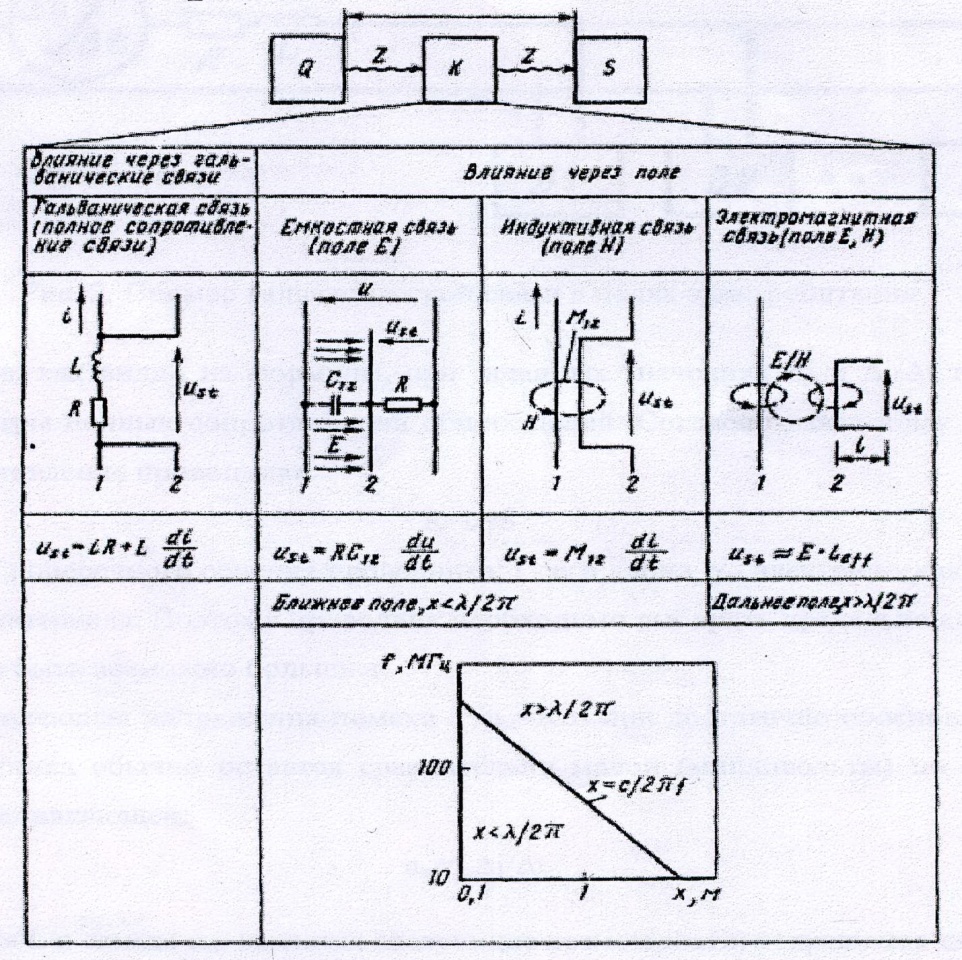 Q Z K Z S
Влияние через галь-
ванические связи
Влияние через поле
Гальваническая связь
(полное сопротивле-
ние связи)
Емкостная связь
(поле E)
Индуктивная связь
(поле H)
Электромагнитная
связь (поле E, H)
i
L
R
u_st
1 2
u
u_st
C_12
R
E
1 2
i
M_12
H
u_st
1 2
E/H
u_st
l
1 2
u_st = iR + L di/dt
u_st = RC_12 du/dt
u_st = M_12 di/dt
u_st ≈ E · l_eff
Ближнее поле, x < λ/2π
Дальнее поле, x > λ/2π
f, МГц
x > λ/2π
100
x = c/2πf
x < λ/2π
10
0,1 1 x, м